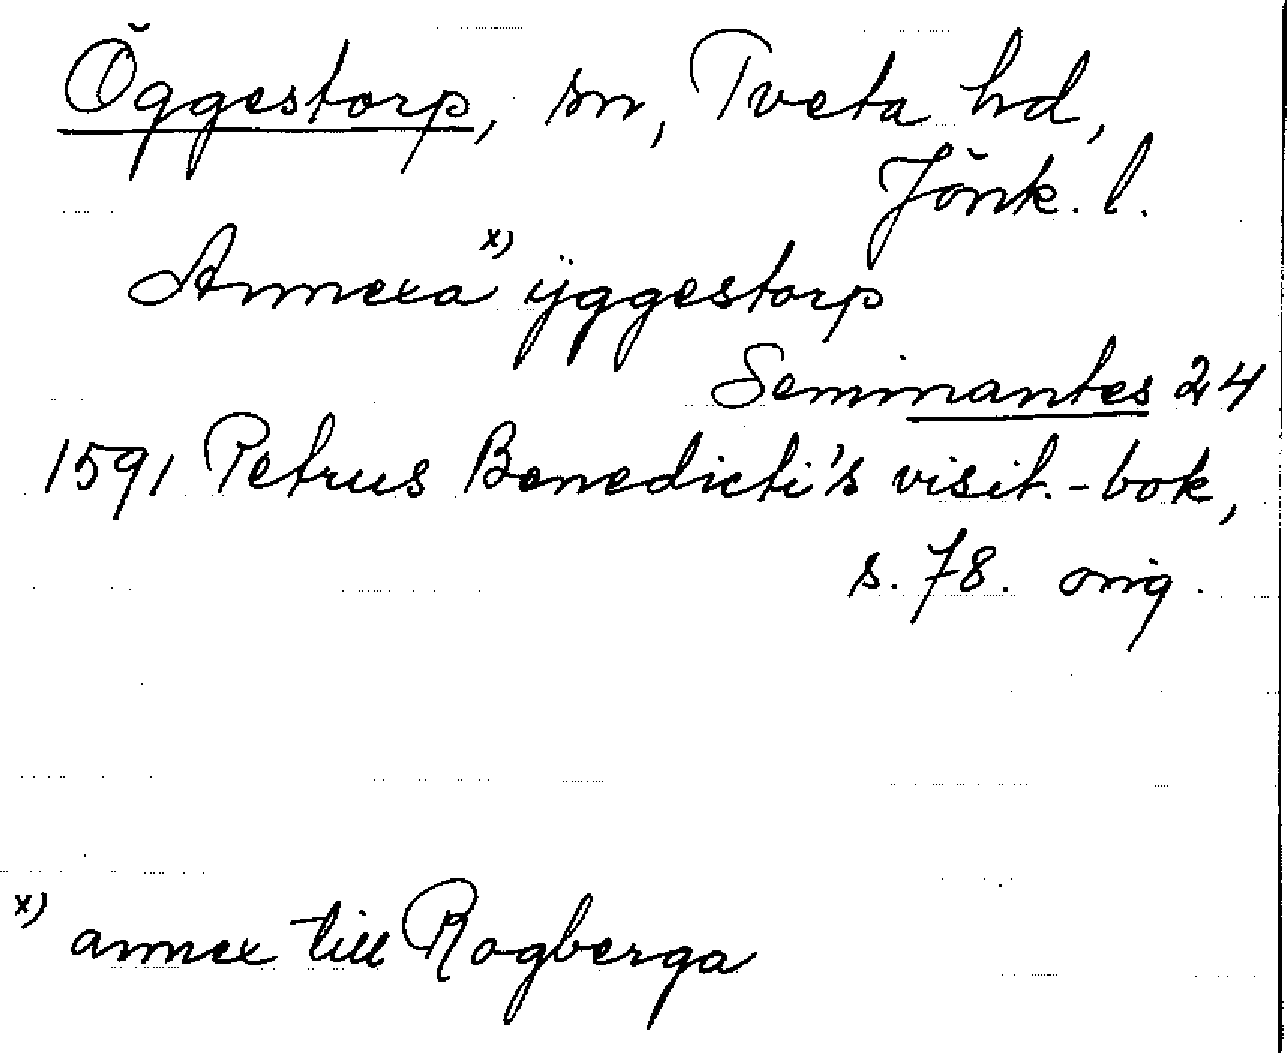 Öggestorp, sn, Tveta hd,
Jönk. l.
Annexa x) ÿggestorp
Seminantes 24
1591 Petrus Benedicti's visit.-bok,
s. 78. orig.
x) annex till Rogberga